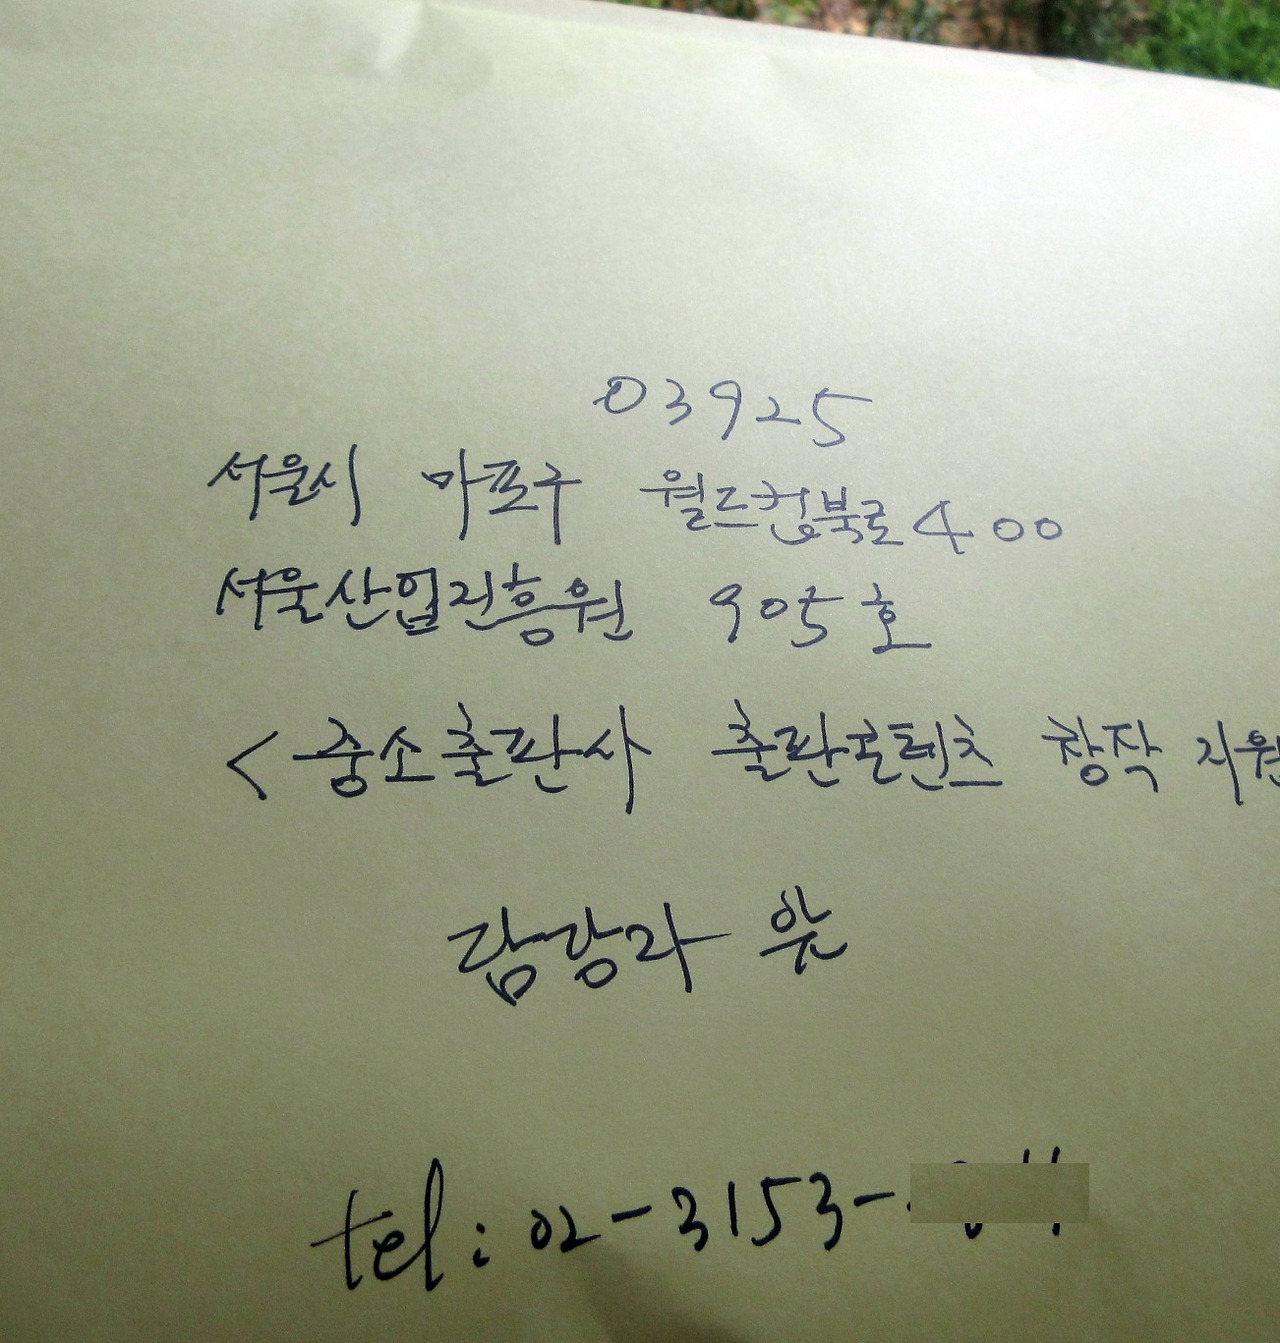 03925
서울시 마포구 월드컵북로 400
서울산업진흥원 905호
<중소출판사 출판콘텐츠 창작 지원
담당자 앞
tel: 02-3153-